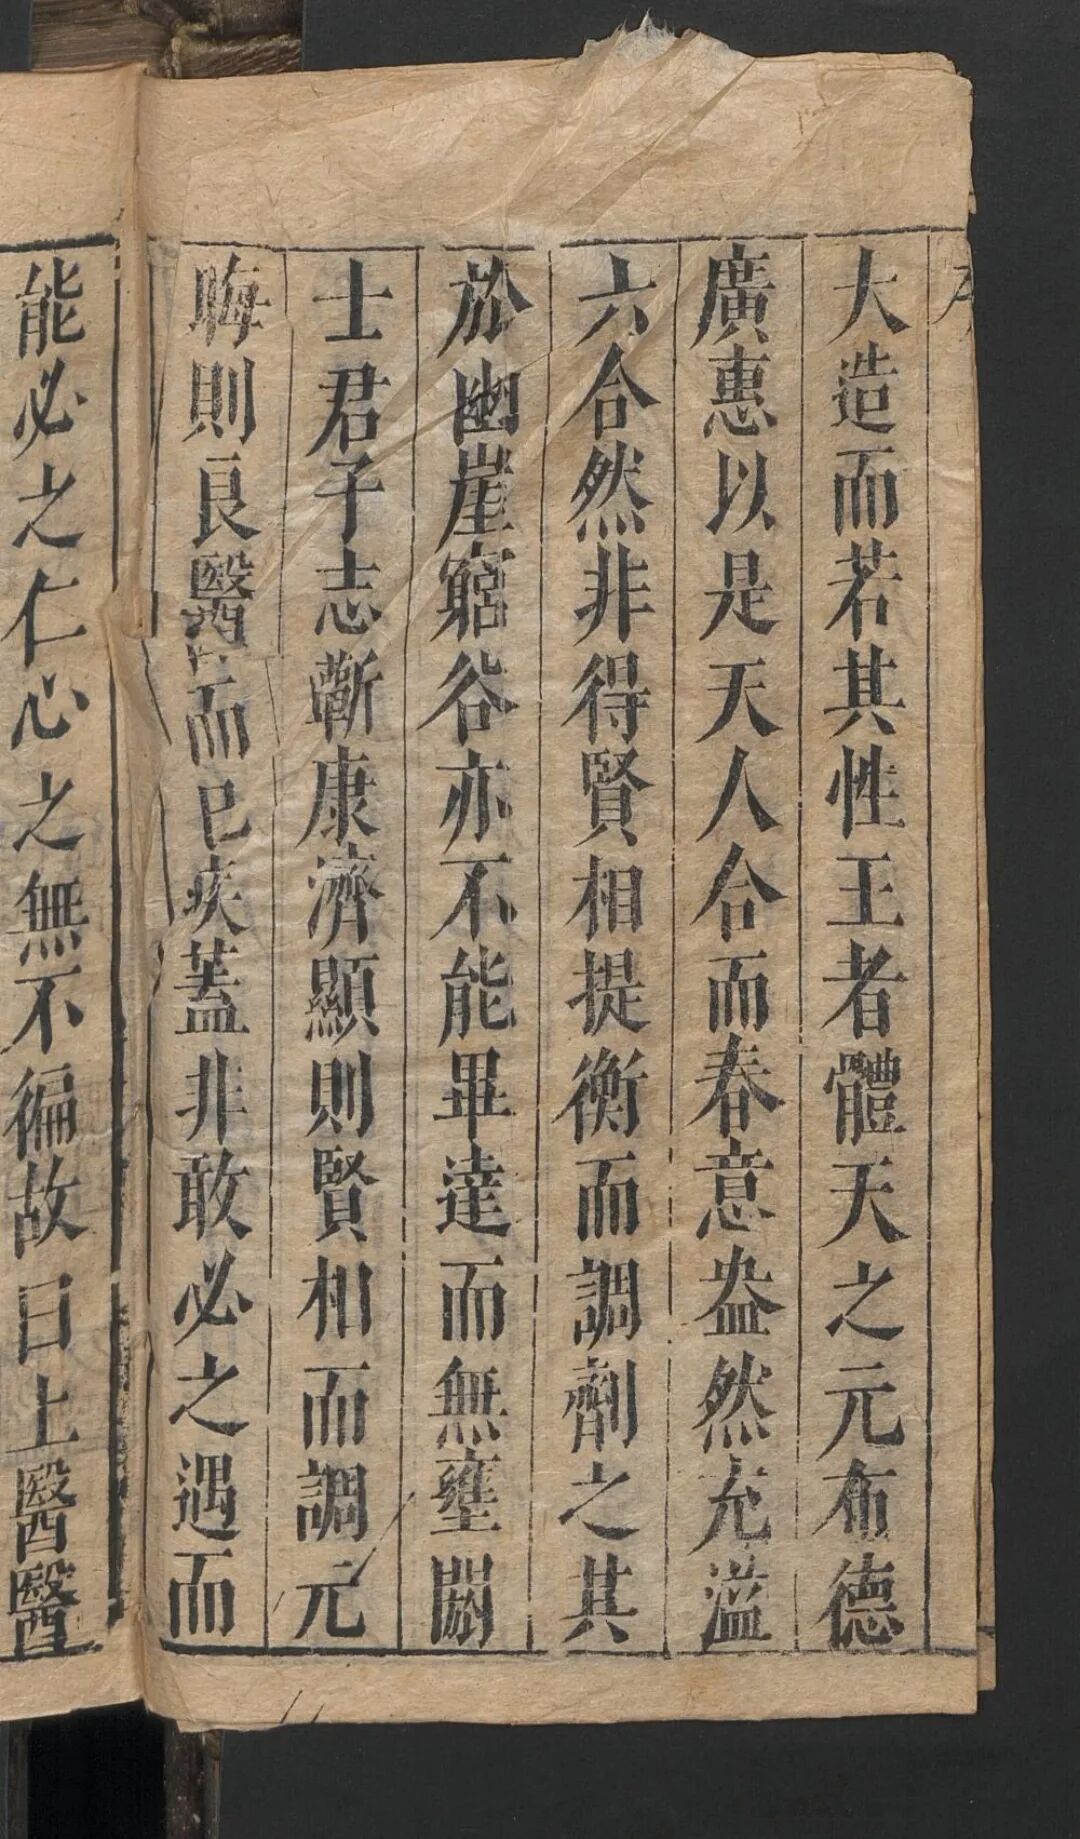 大造而若其性王者體天之元布德
廣惠以是天人合而春意盎然充溢
六合然非得賢相提衡而調劑之其
於幽崖窮谷亦不能畢達而無壅閼
士君子志蘄康濟顯則賢相而調元
晦則良醫而已疾蓋非敢必之遇而
能必之仁心之無不徧故曰上醫醫